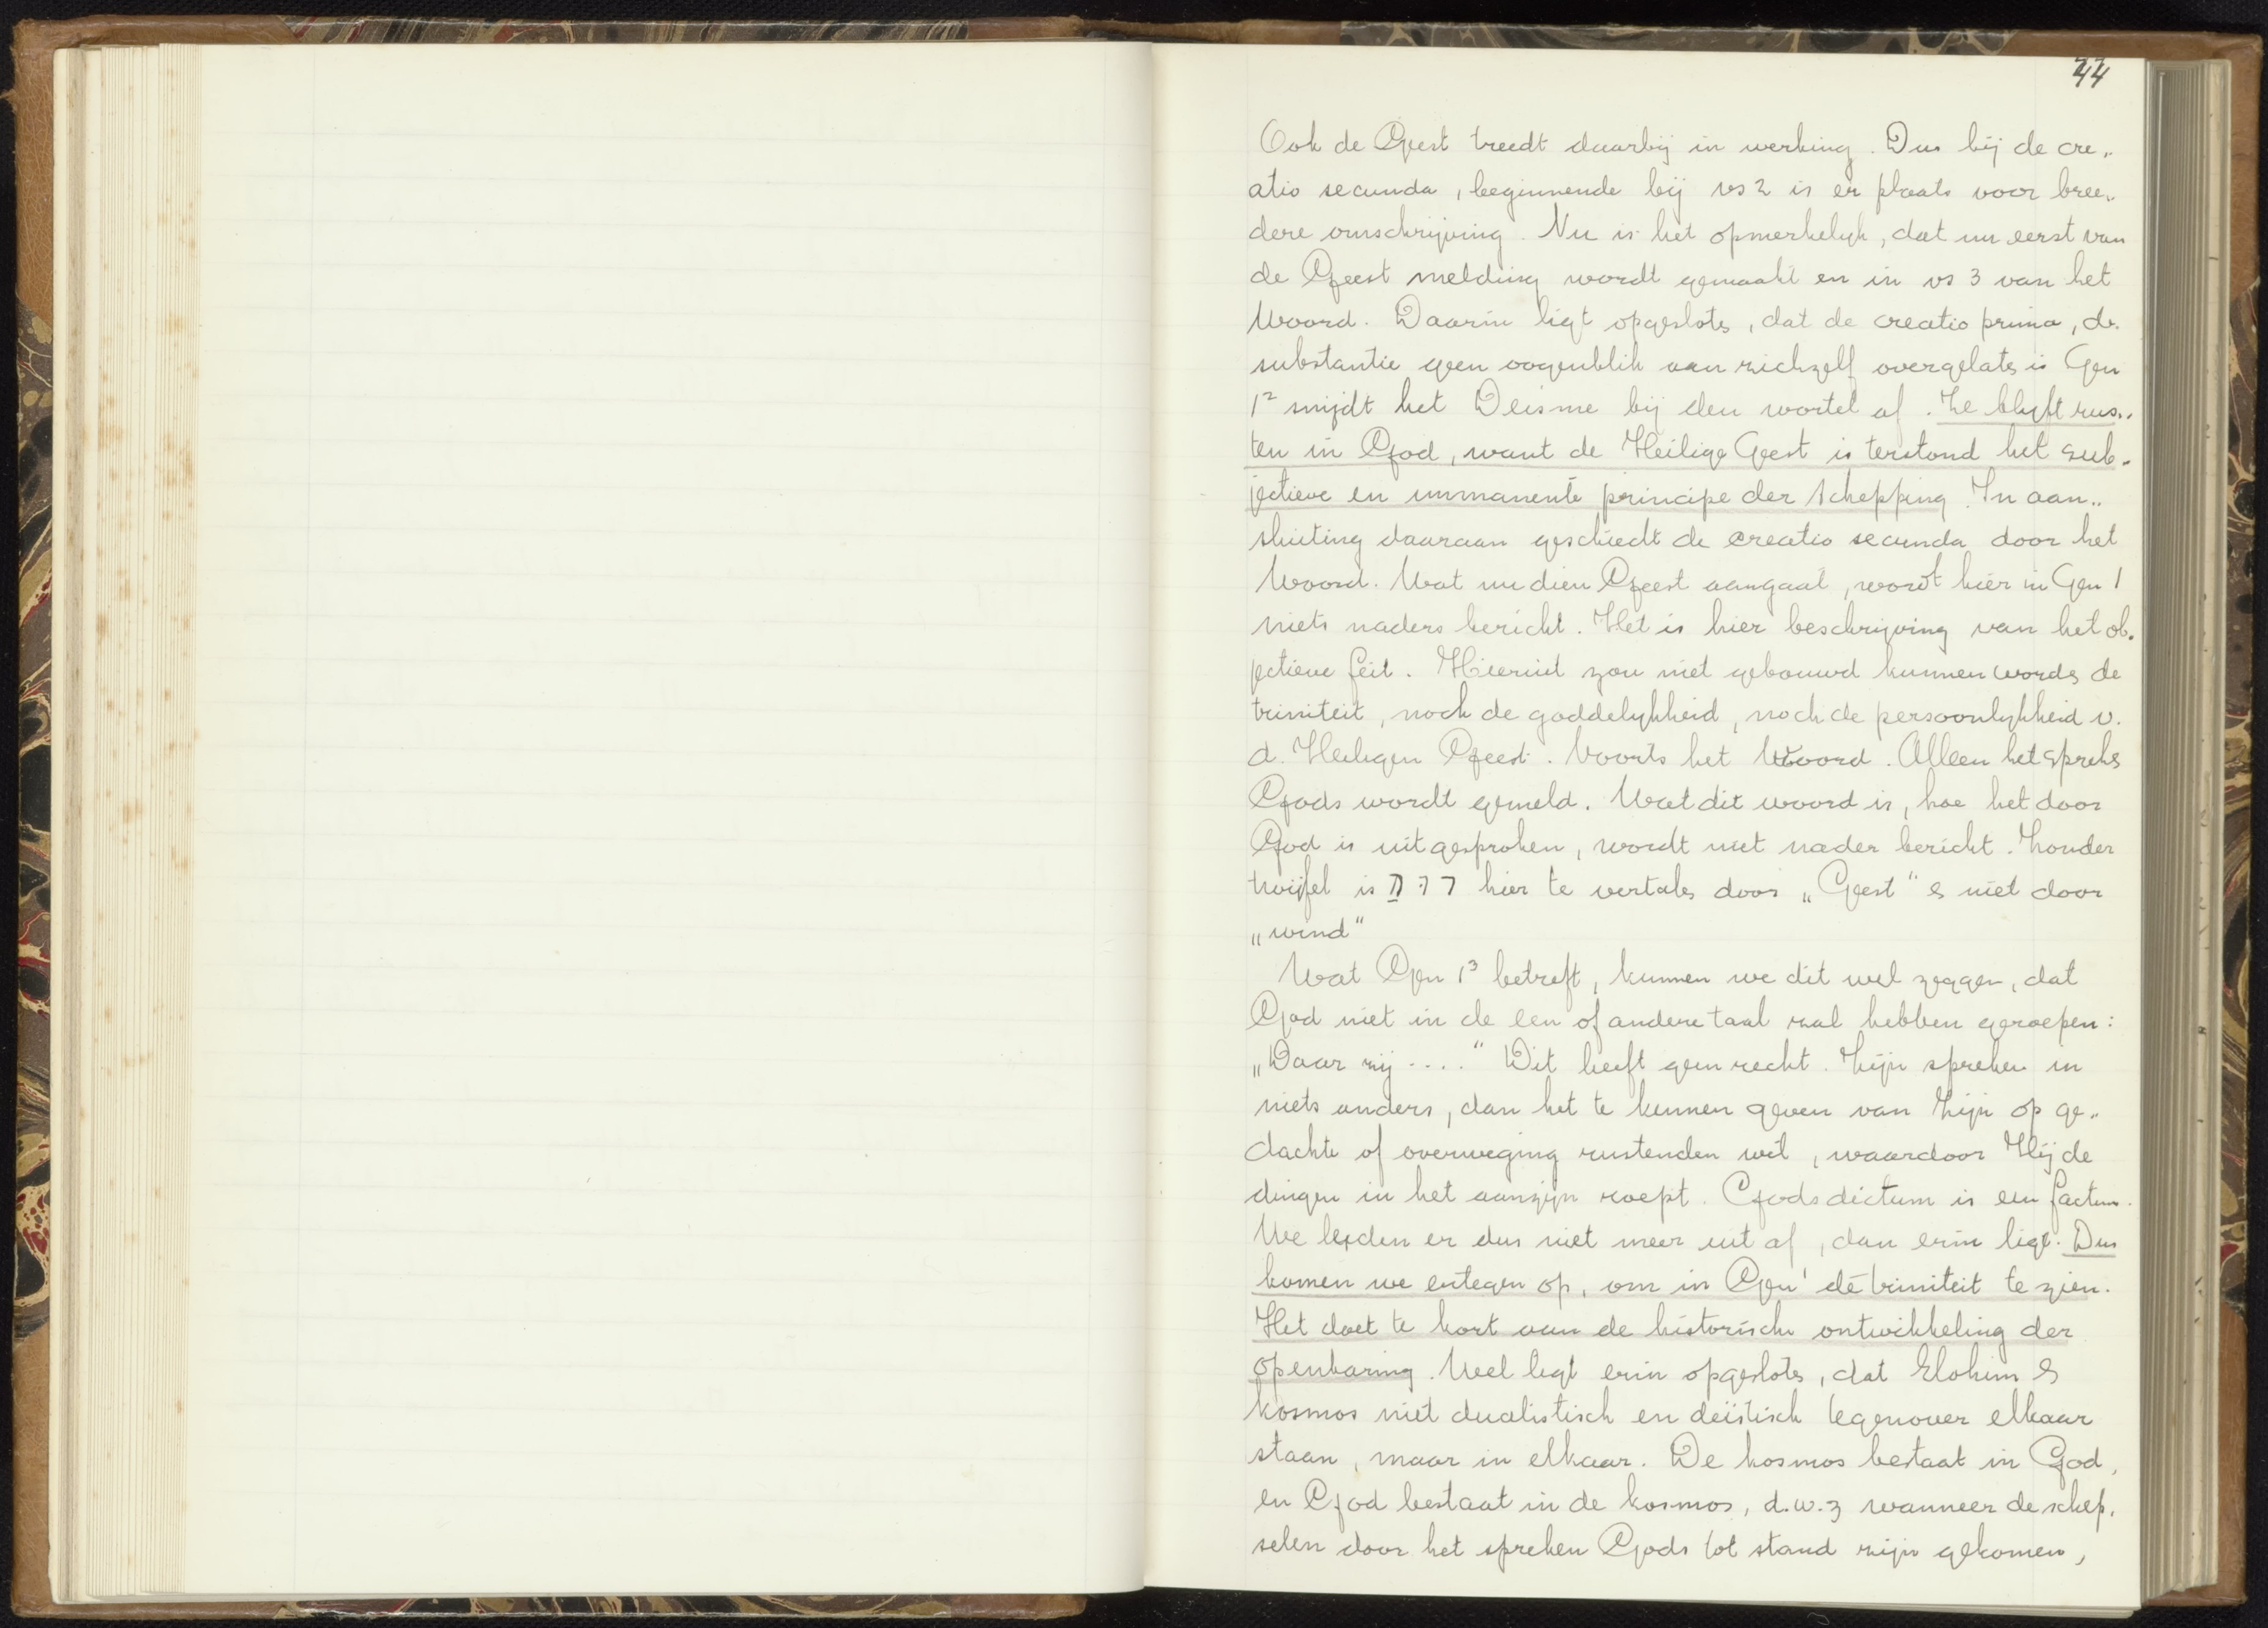 44
Ook de Geest treedt daarbij in werking. Dus bij de cre„
atio secunda, beginnende bij vs 2 is er plaats voor bree„
dere omschrijving. Nu is het opmerkelijk, dat nu eerst van
de Geest melding wordt gemaakt en in vs 3 van het
Woord. Daarin ligt opgesloten, dat de creatio prima, de
substantie geen oogenblik aan zichzelf overgelaten is Gen
1² snijdt het Deïsme bij den wortel af. Ze blijft rus„
ten in God, want de Heilige Geest is terstond het sub„
jectieve en immanente principe der schepping. In aan„
sluiting daaraan geschiedt de creatio secunda door het
Woord. Wat nu dien Geest aangaat, wordt hier in Gen 1
niets naders bericht. Het is hier beschrijving van het ob„
jectieve feit. Hieruit zou niet gebouwd kunnen worden de
triniteit, noch de goddelijkheid, noch de persoonlijkheid v.
d. Heiligen Geest. Voorts het Woord. Alleen het spreken
Gods wordt gemeld. Wat dit woord is, hoe het door
God is uitgesproken, wordt niet nader bericht. Zonder
twijfel is רוח hier te vertalen door „Geest" & niet door
„wind"
Wat Gen 1³ betreft, kunnen we dit wel zeggen, dat
God niet in de een of andere taal zal hebben geroepen:
„Daar zij ...." Dit heeft geen recht. Zijn spreken in
niets anders, dan het te kennen geven van Zijn op ge„
dachte of overweging rustenden wil, waardoor Hij de
dingen in het aanzijn roept. Gods dictum is een factum.
We leiden er dus niet meer uit af, dan erin ligt. Dus
komen we ertegen op, om in Gen¹ dé triniteit te zien.
Het doet te kort aan de historische ontwikkeling der
openbaring. Wel ligt erin opgesloten, dat Elohim &
kosmos niet dualistisch en deïstisch tegenover elkaar
staan, maar in elkaar. De kosmos bestaat in God,
en God bestaat in de kosmos, d.w.z wanneer de schep„
selen door het spreken Gods tot stand zijn gekomen,